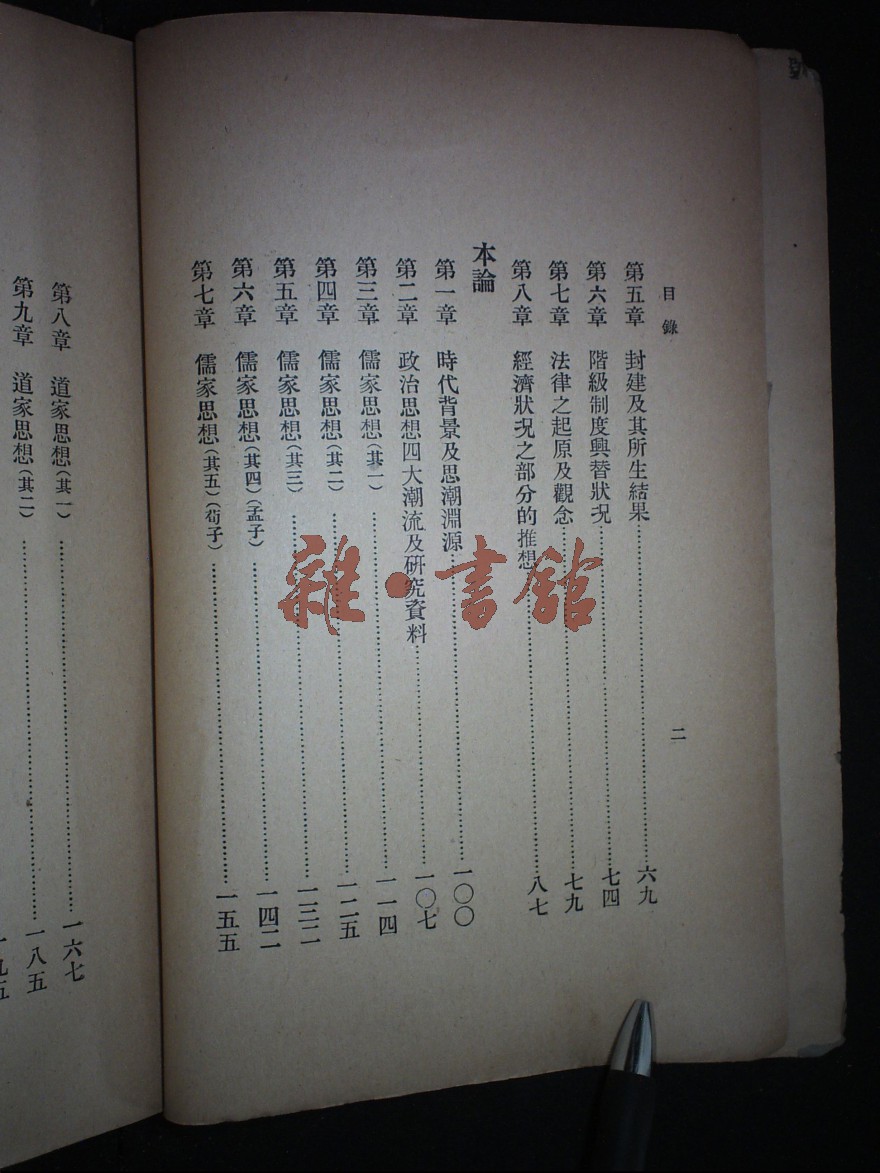 目錄
二
第五章 封建及其所生結果……六九
第六章 階級制度興替狀況……七四
第七章 法律之起原及觀念……七九
第八章 經濟狀況之部分的推想……八七
本論
第一章 時代背景及思潮淵源……一〇〇
第二章 政治思想四大潮流及研究資料……一〇七
第三章 儒家思想（其一）……一一四
第四章 儒家思想（其二）……一二五
第五章 儒家思想（其三）……一三二
第六章 儒家思想（其四）（孟子）……一四二
第七章 儒家思想（其五）（荀子）……一五五
第八章 道家思想（其一）……一六七
第九章 道家思想（其二）……一八五
雜·書館